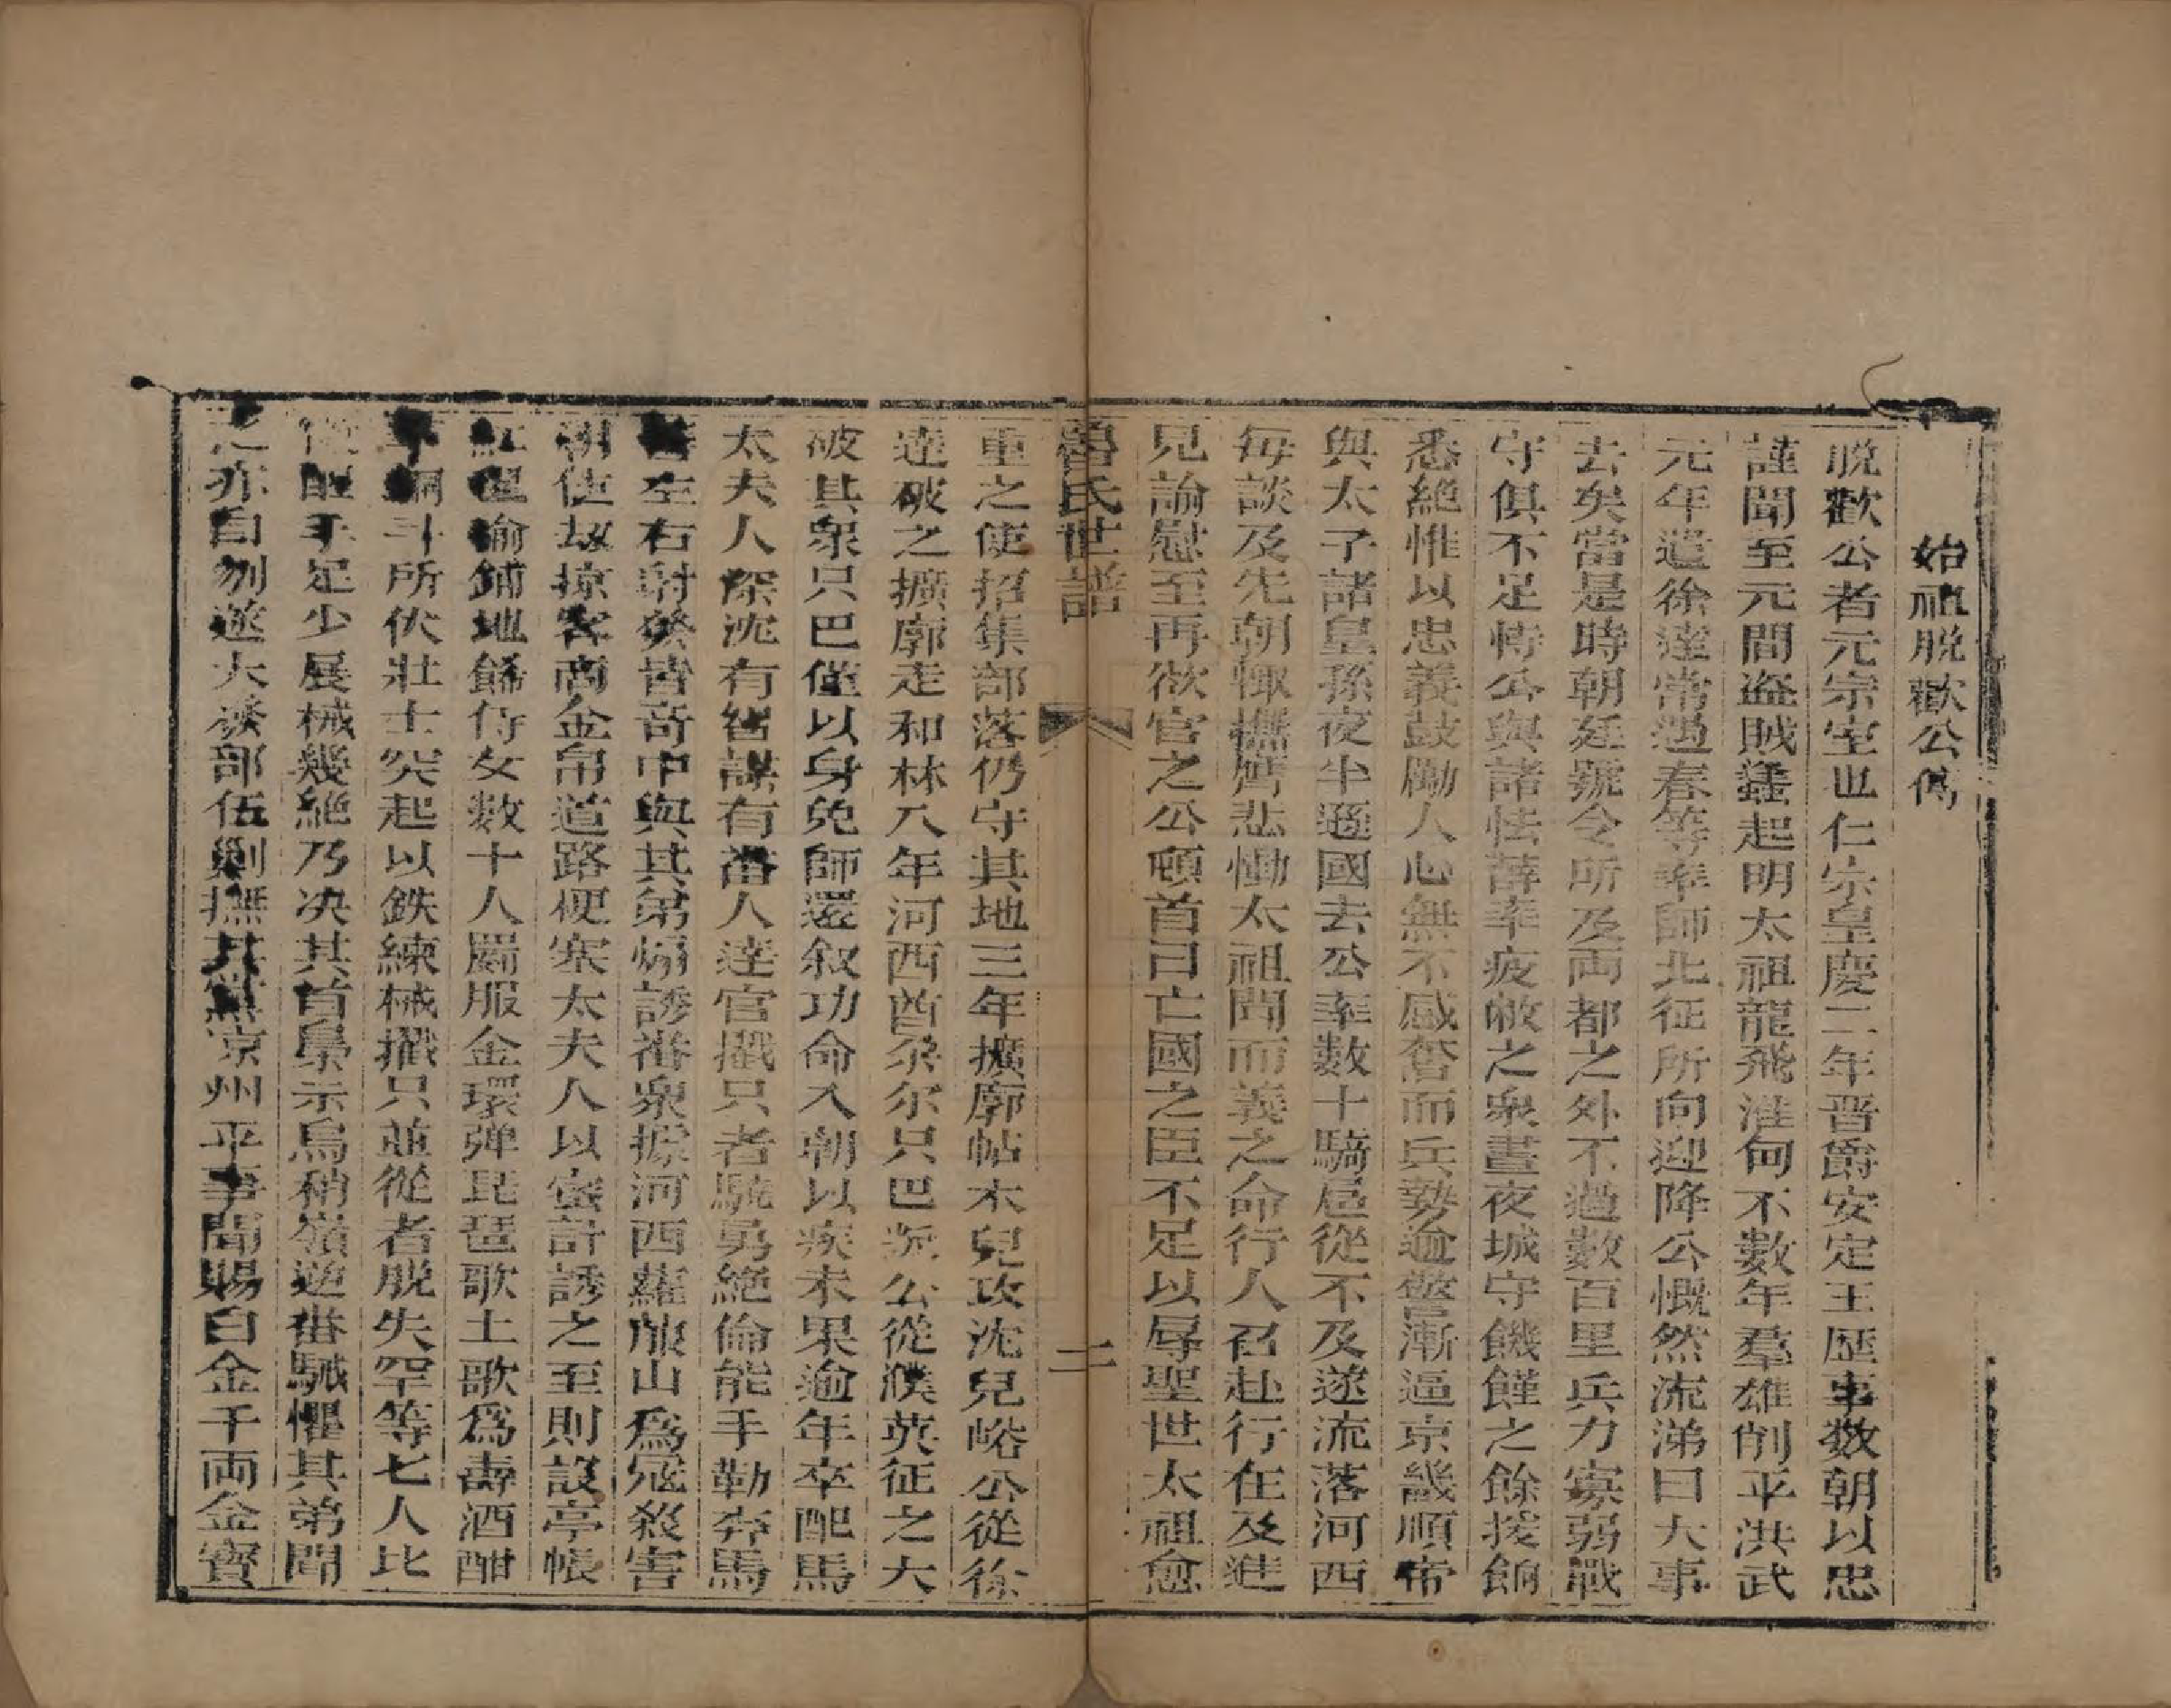 始祖脱歡公傳
脱歡公者元宗室也仁宗皇慶二年晋爵安定王歴事数朝以忠
謹聞至元間盗賊蜂起明太祖龍飛淮甸不數年羣雄削平洪武
元年遣徐達常遇春等率師北征所向迎降公慨然流涕曰大事
去矣當是時朝廷號令所及両都之外不過數百里兵力寡弱戰
守俱不足恃公與諸怯薛率疲敝之衆晝夜城守饑饉之餘援餉
悉絶惟以忠義鼓勵人心無不感奮而兵勢逾警漸逼京畿順帝
與太子諸皇孫夜半遁國去公率数十騎扈從不及遂流落河西
毎談及先朝輙撫膺悲慟太祖聞而義之命行人召赴行在及進
見諭慰至再欲官之公頓首曰亡國之臣不足以辱聖世太祖愈
魯氏世譜
二
重之使招集部落仍守其地三年擴廓帖木兒攻沈兒峪公從徐
達破之擴廓走和林八年河西酋朶尔只巴叛公從濮英征之大
破其衆只巴僅以身免師還叙功命入朝以疾未果逾年卒配馬
太夫人深沈有智謀有畨人達官攛只者驍勇絶倫能手勒奔馬
左右射發皆奇中與其弟煽誘畨衆據河西蘿脧山為冦殺害
使刼掠客商金帛道路梗塞太夫人以宻計誘之至則設亭帳
氊毹鋪地飾侍女数十人罽服金環弹琵琶歌土歌爲壽酒酣
銅斗所伏壯士突起以鉄練械攛只並從者脱失罕等七人比
醒手足少展械幾絶乃决其首梟示烏稍嶺逆畨駴懼其弟聞
之亦自刎遂大發部伍剿撫其黨凉州平事聞賜白金千両金寳